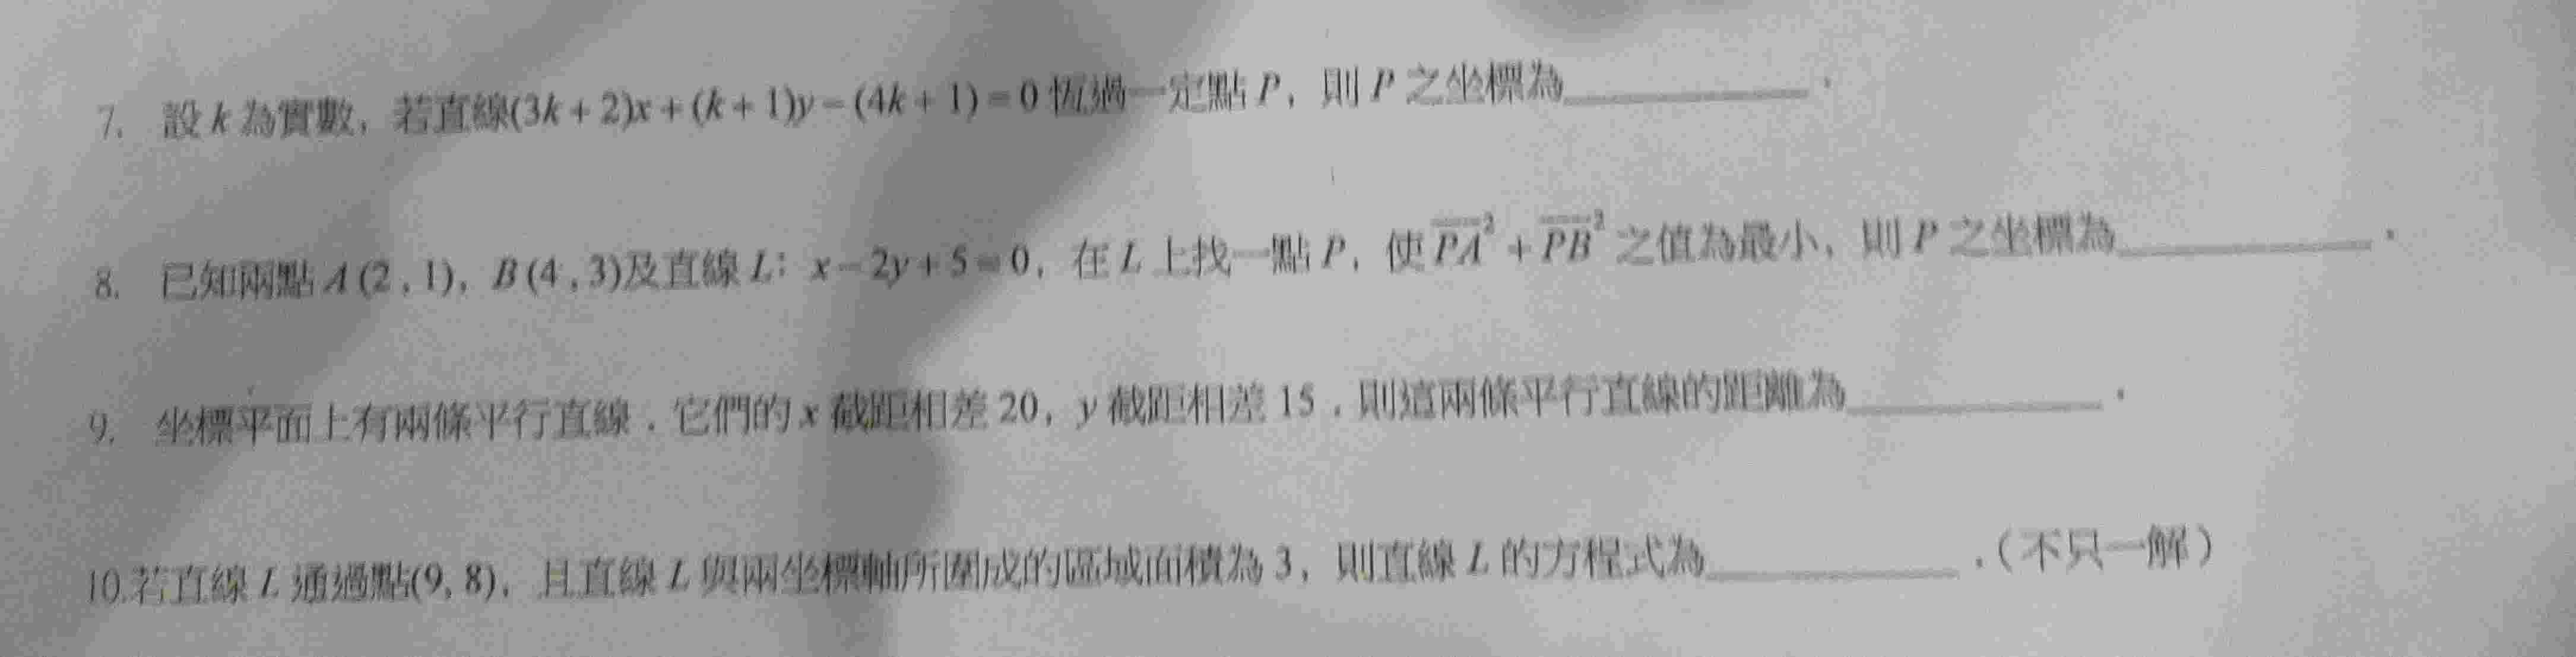 7. 設 k 為實數，若直線(3k + 2)x + (k + 1)y − (4k + 1) = 0 恆過一定點 P，則 P 之坐標為____________．
8. 已知兩點 A (2 , 1)，B (4 , 3)及直線 L：x − 2y + 5 = 0，在 L 上找一點 P，使 P̅A̅² + P̅B̅² 之值為最小，則 P 之坐標為____________．
9. 坐標平面上有兩條平行直線．它們的 x 截距相差 20，y 截距相差 15．則這兩條平行直線的距離為____________．
10.若直線 L 通過點(9, 8)，且直線 L 與兩坐標軸所圍成的區域面積為 3，則直線 L 的方程式為____________．（不只一解）